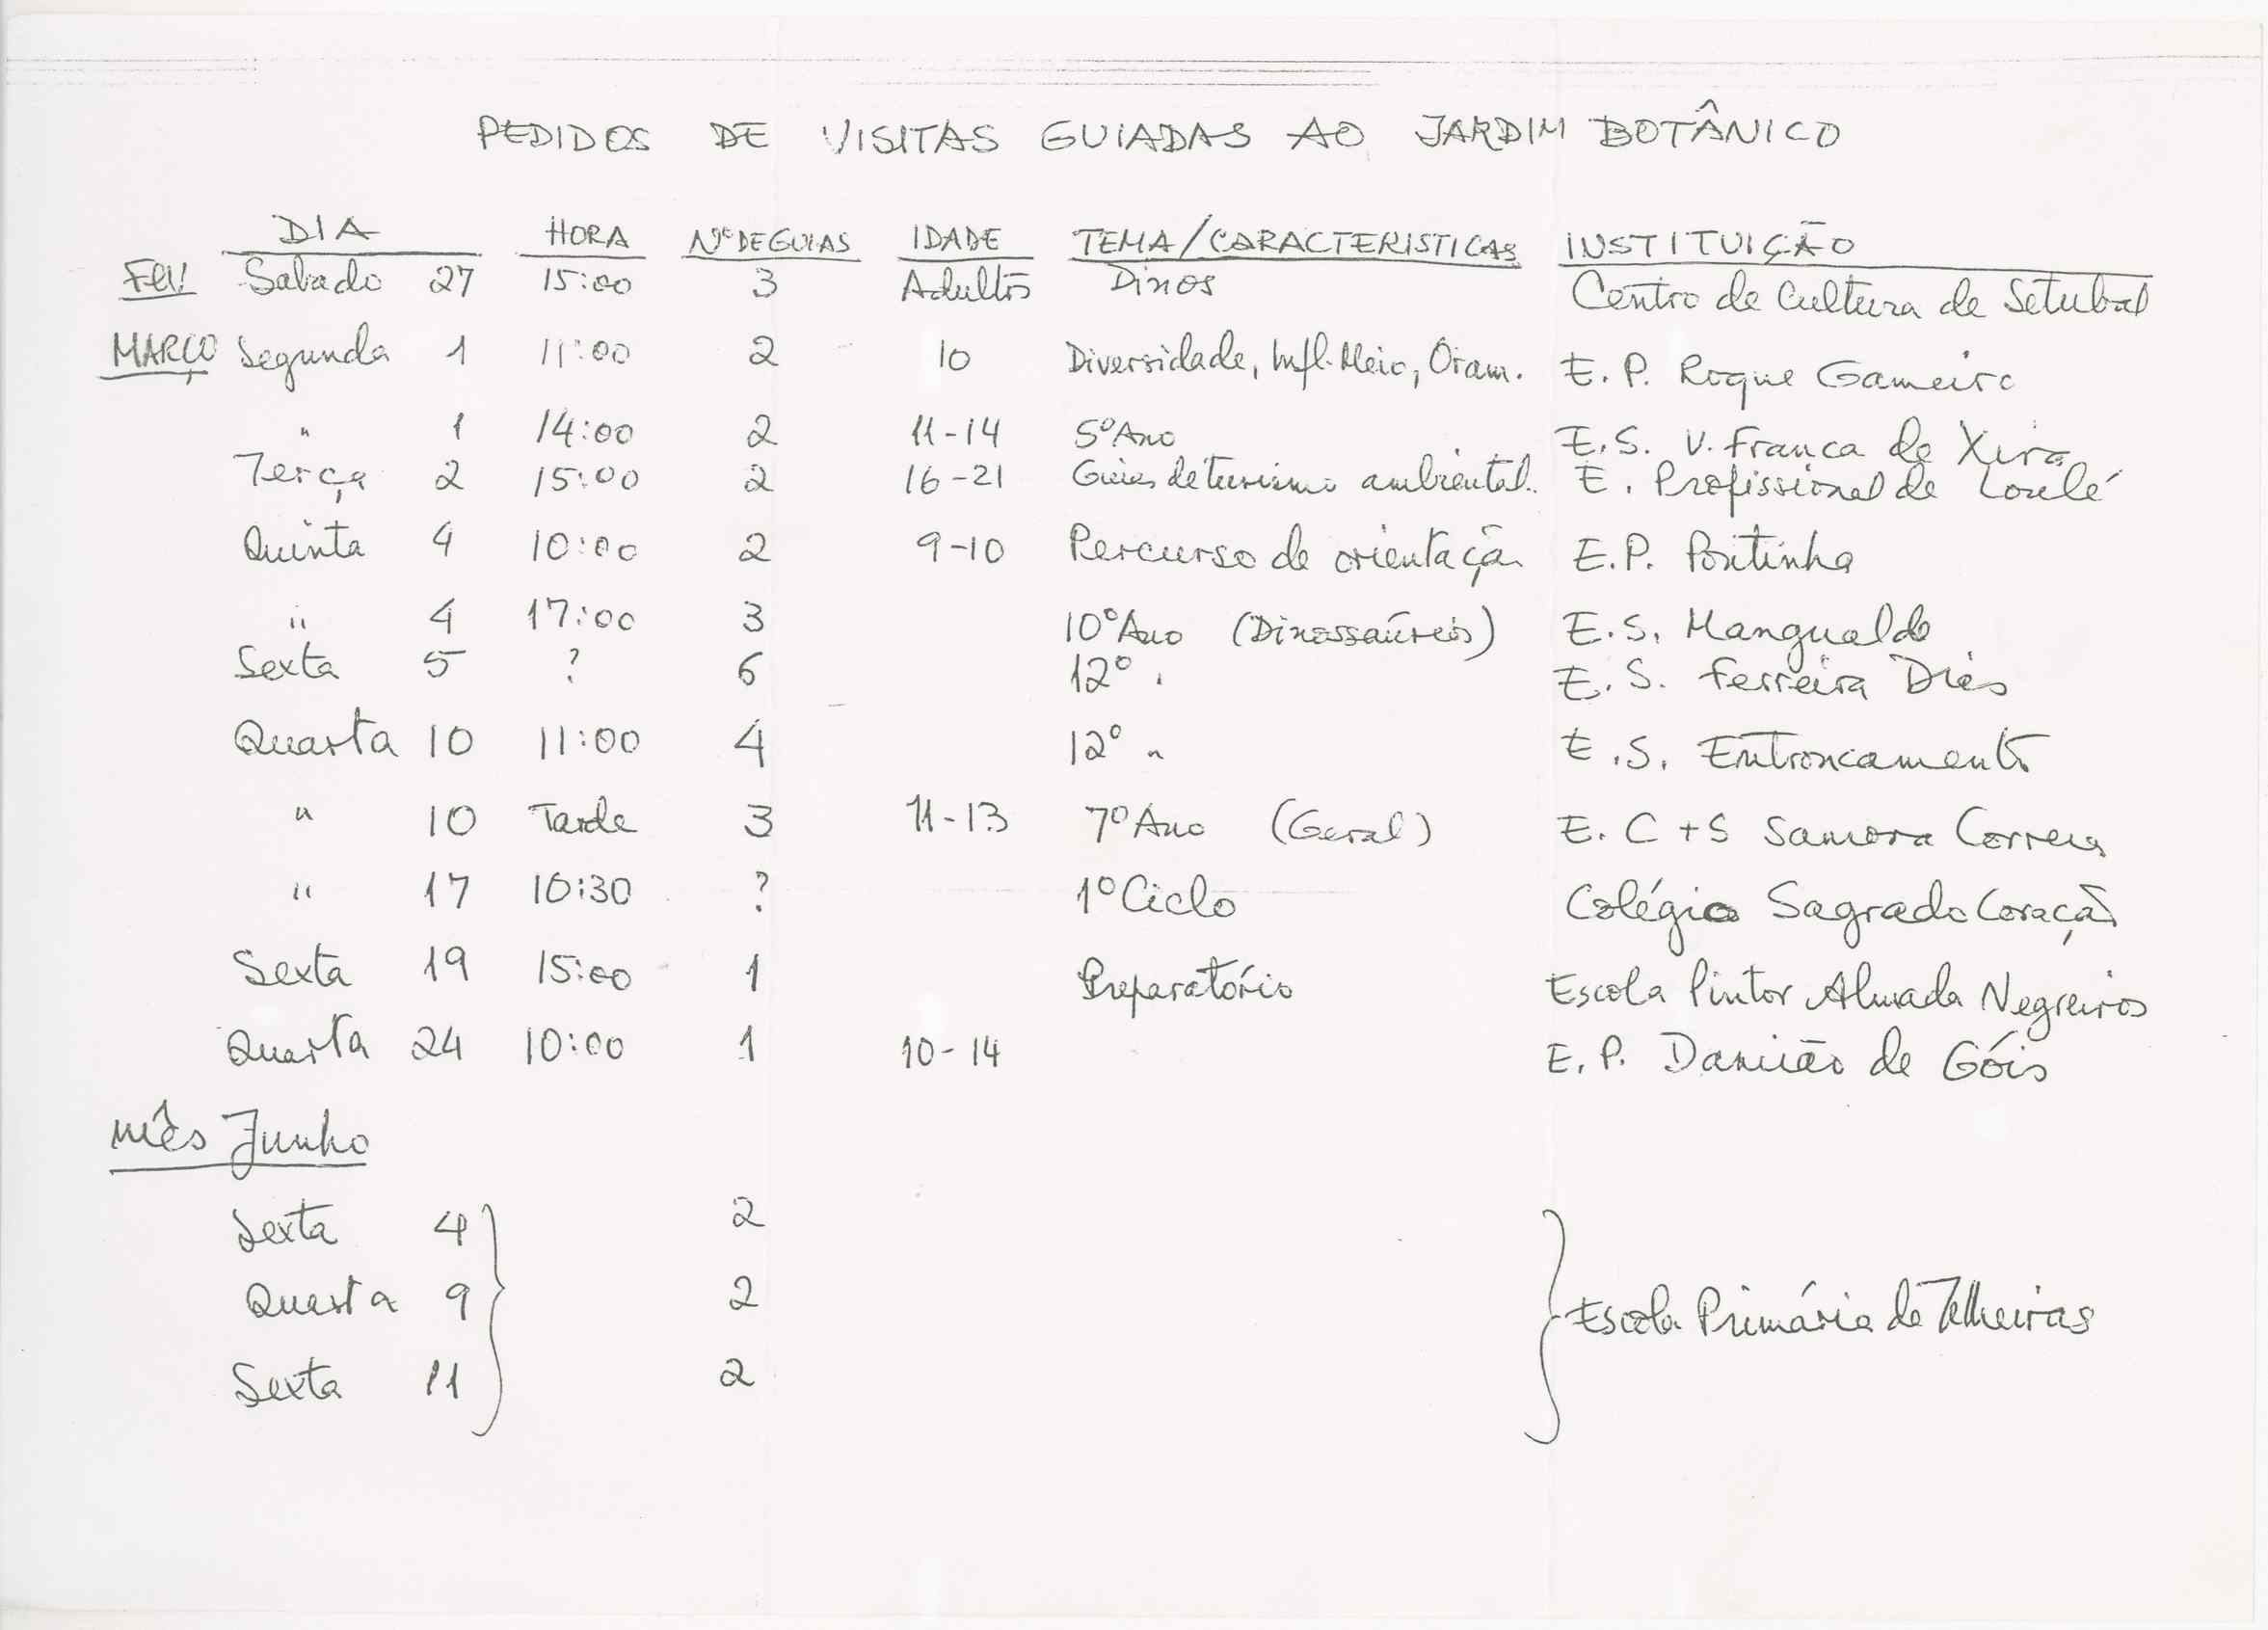 PEDIDOS DE VISITAS GUIADAS AO JARDIM BOTÂNICO
DIA HORA Nº DE GUIAS IDADE TEMA/CARACTERISTICAS INSTITUIÇÃO
Sabado 27 15:00 3 Adultos Dinos Centro de Cultura de Setubal
MARÇO Segunda 1 11:00 2 10 Diversidade, Infl. Meio, E. P. Roque Gameiro
" 1 14:00 2 11-14 5º Ano E. S. V. Franca de Xira
Terça 2 15:00 2 16-21 Guias de turismo ambiental. E. Profissional de Loulé
Quinta 4 10:00 2 9-10 Percurso de orientação E. P. Pontinha
" 4 17:00 3 10º Ano (Dinossaúreos) E. S. Mangualde
Sexta 5 ? 6 12º " E. S. Ferreira Dias
Quarta 10 11:00 4 12º " E. S. Entroncamento
" 10 Tarde 3 11-13 7º Ano (Geral) E. C + S Samora Correia
" 17 10:30 ? 1º Ciclo Colégio Sagrado Coração
Sexta 19 15:00 1 Preparatório Escola Pintor Almada Negreiros
Quarta 24 10:00 1 10-14 E. P. Damião de Góis
Mês Junho
Sexta 4 2
Quarta 9 2 Escola Primária de Telheiras
Sexta 11 2